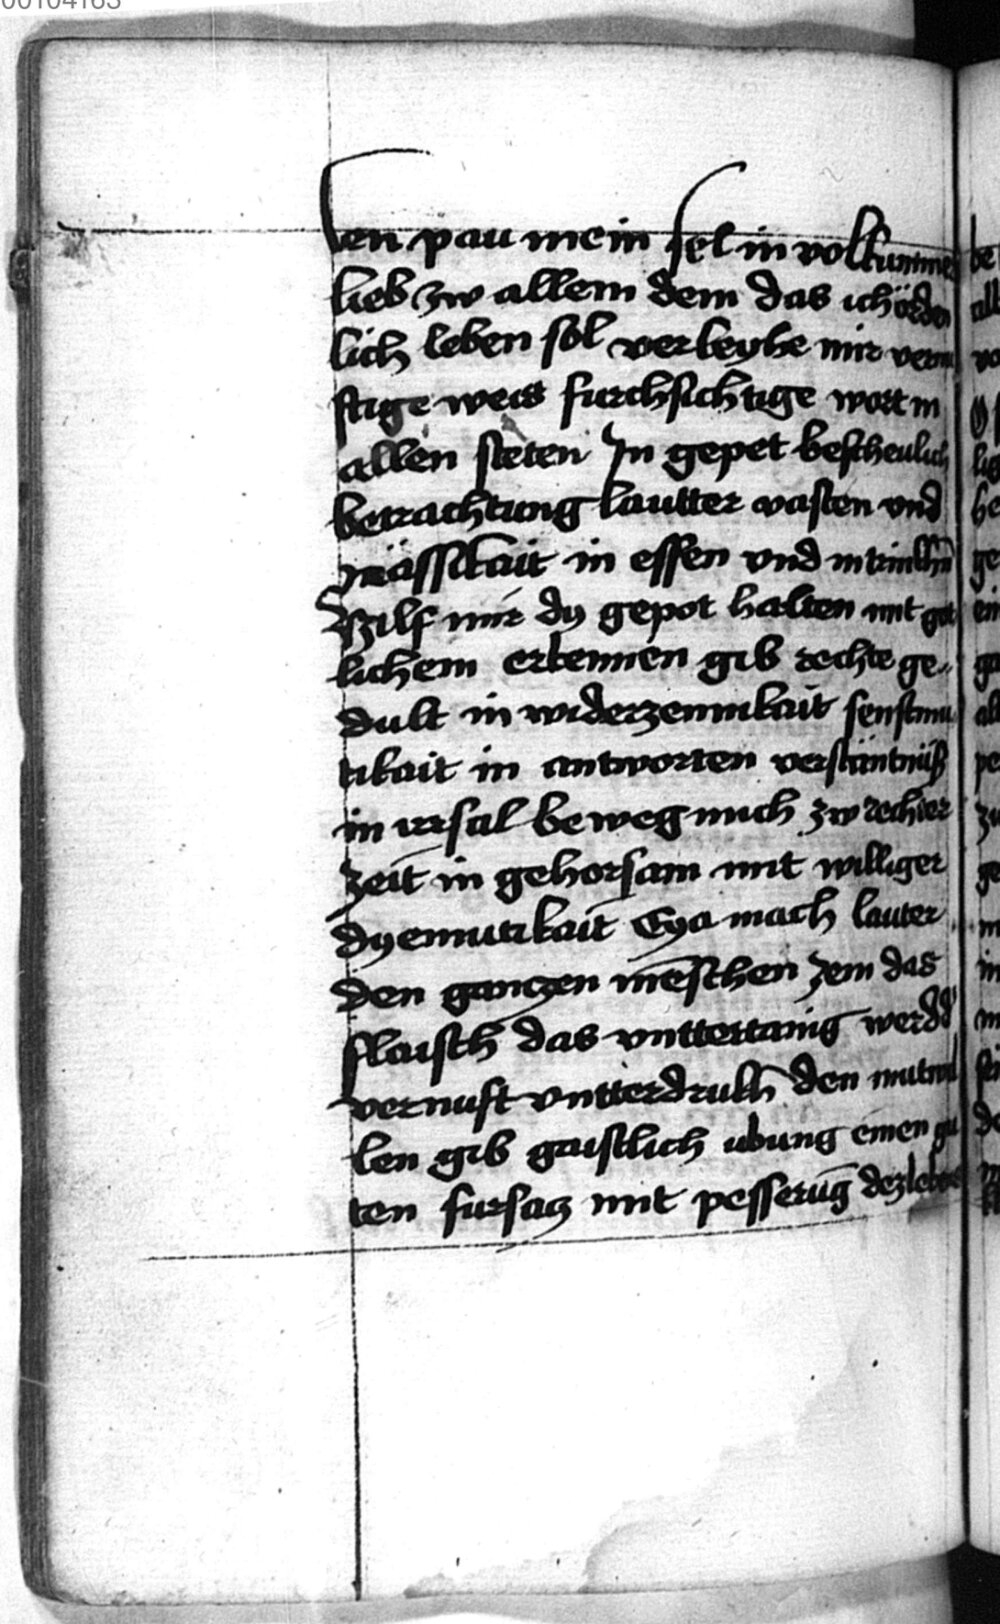 00104163
len pau mein sel in volkumme
lieb zw allem dem das ich örden
lich leben sol verleyhe mir vernu
ftige weis furchsichtige wort in
allen steten In gepet bescheulich
betrachtung lautter vasten vnd
mässikait in essen vnd in trinkhn
Hilf mir dy gepot halten mit got
lichem erkennen gib rechte ge
dult in widerzemikait senftmu
tikait in antworten verstäntnüß
in irrsal beweg mich zw rechter
zeit in gehorsam mit williger
dyemutikait Eya mach lauter
den ganczen mēschen zem das
flaisch das vnttertanig werd d'
vernuft vntterdrukh den mutwil
len gib gaistlich ubung einen gu
ten fursacz mit pesserūg dez lebens